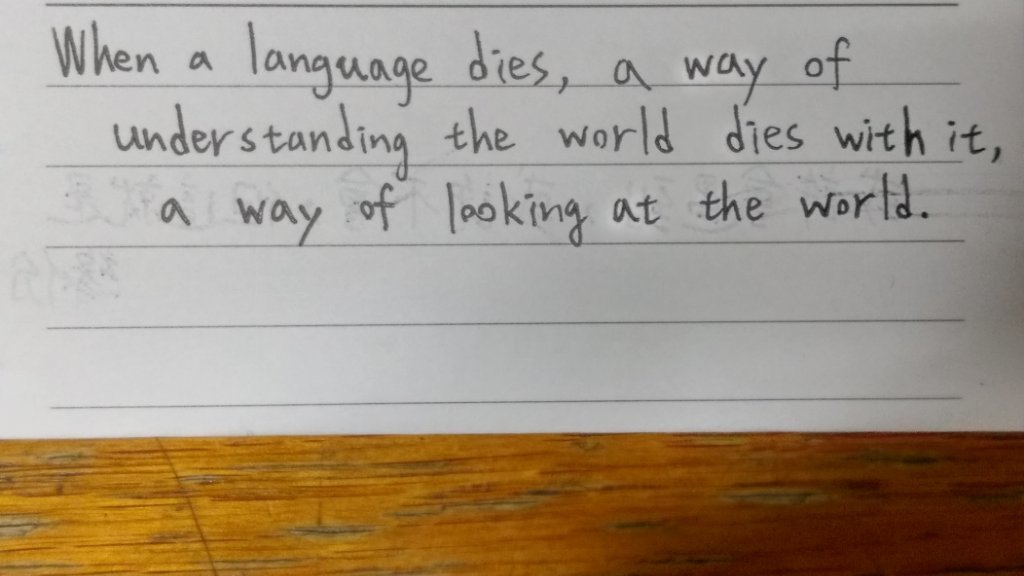 When a language dies, a way of
understanding the world dies with it,
a way of looking at the world.